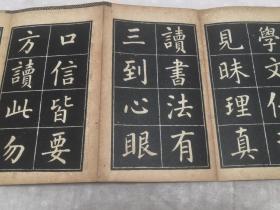 學文
見昧理真
讀書法有
三到心眼
口信皆要
方讀此勿